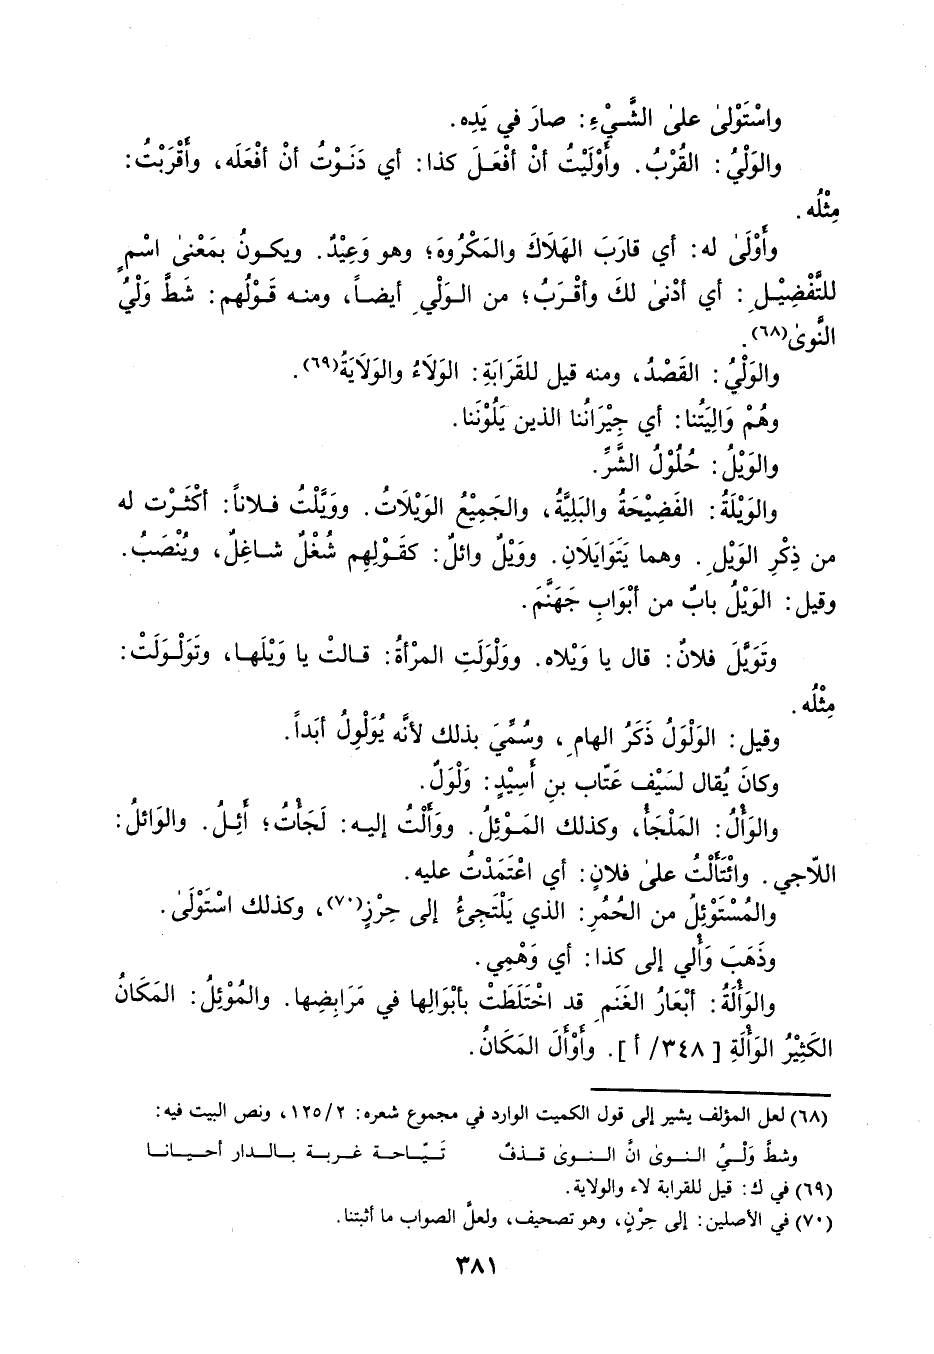 واسْتَوْلىٰ علىٰ الشَّيْءِ: صارَ في يَدِه.
والوَلْيُ: القُرْبُ. وأَوْلَيْتُ أنْ أفْعَلَ كذا: أي دَنَوْتُ أنْ أفْعَلَه، وأَقْرَبْتُ:
مِثْلُه.
وأَوْلىٰ له: أي قارَبَ الهَلَاكَ والمَكْرُوهَ؛ وهو وَعِيْدٌ. ويكونُ بمَعْنىٰ اسْمٍ
للتَّفْضِيْلِ: أي أدْنىٰ لكَ وأقْرَبُ؛ من الوَلْيِ أيضاً، ومنه قَوْلُهم: شَطَّ وَلْيُ
النَّوىٰ(٦٨).
والوَلْيُ: القَصْدُ، ومنه قيل للقَرَابَةِ: الوَلَاءُ والوَلَايَةُ(٦٩).
وهُمْ وَالِيَتُنا: أي جِيْرَانُنا الذين يَلُوْنَنا.
والوَيْلُ: حُلُوْلُ الشَّرِّ.
والوَيْلَةُ: الفَضِيْحَةُ والبَلِيَّةُ، والجَمِيْعُ الوَيْلَاتُ. ووَيَّلْتُ فلاناً: أكْثَرْت له
من ذِكْرِ الوَيْلِ. وهما يَتَوَايَلَانِ. ووَيْلٌ وائلٌ: كقَوْلِهِم شُغْلٌ شاغِلٌ، ويُنْصَبُ.
وقيل: الوَيْلُ بابٌ من أبْوَابِ جَهَنَّمَ.
وتَوَيَّلَ فلانٌ: قال يا وَيْلاه. ووَلْوَلَتِ المرْأةُ: قالتْ يا وَيْلَها، وتَوَلْوَلَتْ:
مِثْلُه.
وقيل: الوَلْوَلُ ذَكَرُ الهامِ، وسُمِّيَ بذلك لأنَّه يُوَلْوِلُ أبَداً.
وكانَ يُقال لسَيْفِ عَتّاب بنِ أَسِيْدٍ: وَلْوَلٌ.
والوَأْلُ: المَلْجَأُ، وكذلك المَوْئِلُ. ووَأَلْتُ إليه: لَجَأْتُ؛ أَئِلُ. والوَائلُ:
اللّاجي. واتْتَأَلْتُ علىٰ فلانٍ: أي اعْتَمَدْتُ عليه.
والمُسْتَوْئِلُ من الحُمُرِ: الذي يَلْتَجِئُ إلى حِرْزٍ(٧٠)، وكذلك اسْتَوْلىٰ.
وذَهَبَ وَأْلي إلى كذا: أي وَهْمِي.
والوَأْلَةُ: أبْعَارُ الغَنَمِ قد اخْتَلَطَتْ بأبْوَالِها في مَرَابِضِها. والمُوْئِلُ: المَكَانُ
الكَثِيْرُ الوَأْلَةِ [٣٤٨/ أ]. وأَوْأَلَ المَكَانُ.
(٦٨) لعل المؤلف يشير إلى قول الكميت الوارد في مجموع شعره: ١٢٥/٢، ونص البيت فيه:
وشطَّ وَلْيُ النوىٰ انَّ النوىٰ قذفٌ تيّاحة غربة بالدار أحيانا
(٦٩) في ك: قيل للقرابة لاء والولاية.
(٧٠) في الأصلين: إلى حِرْنٍ، وهو تصحيف، ولعلَّ الصواب ما أثبتنا.
٣٨١